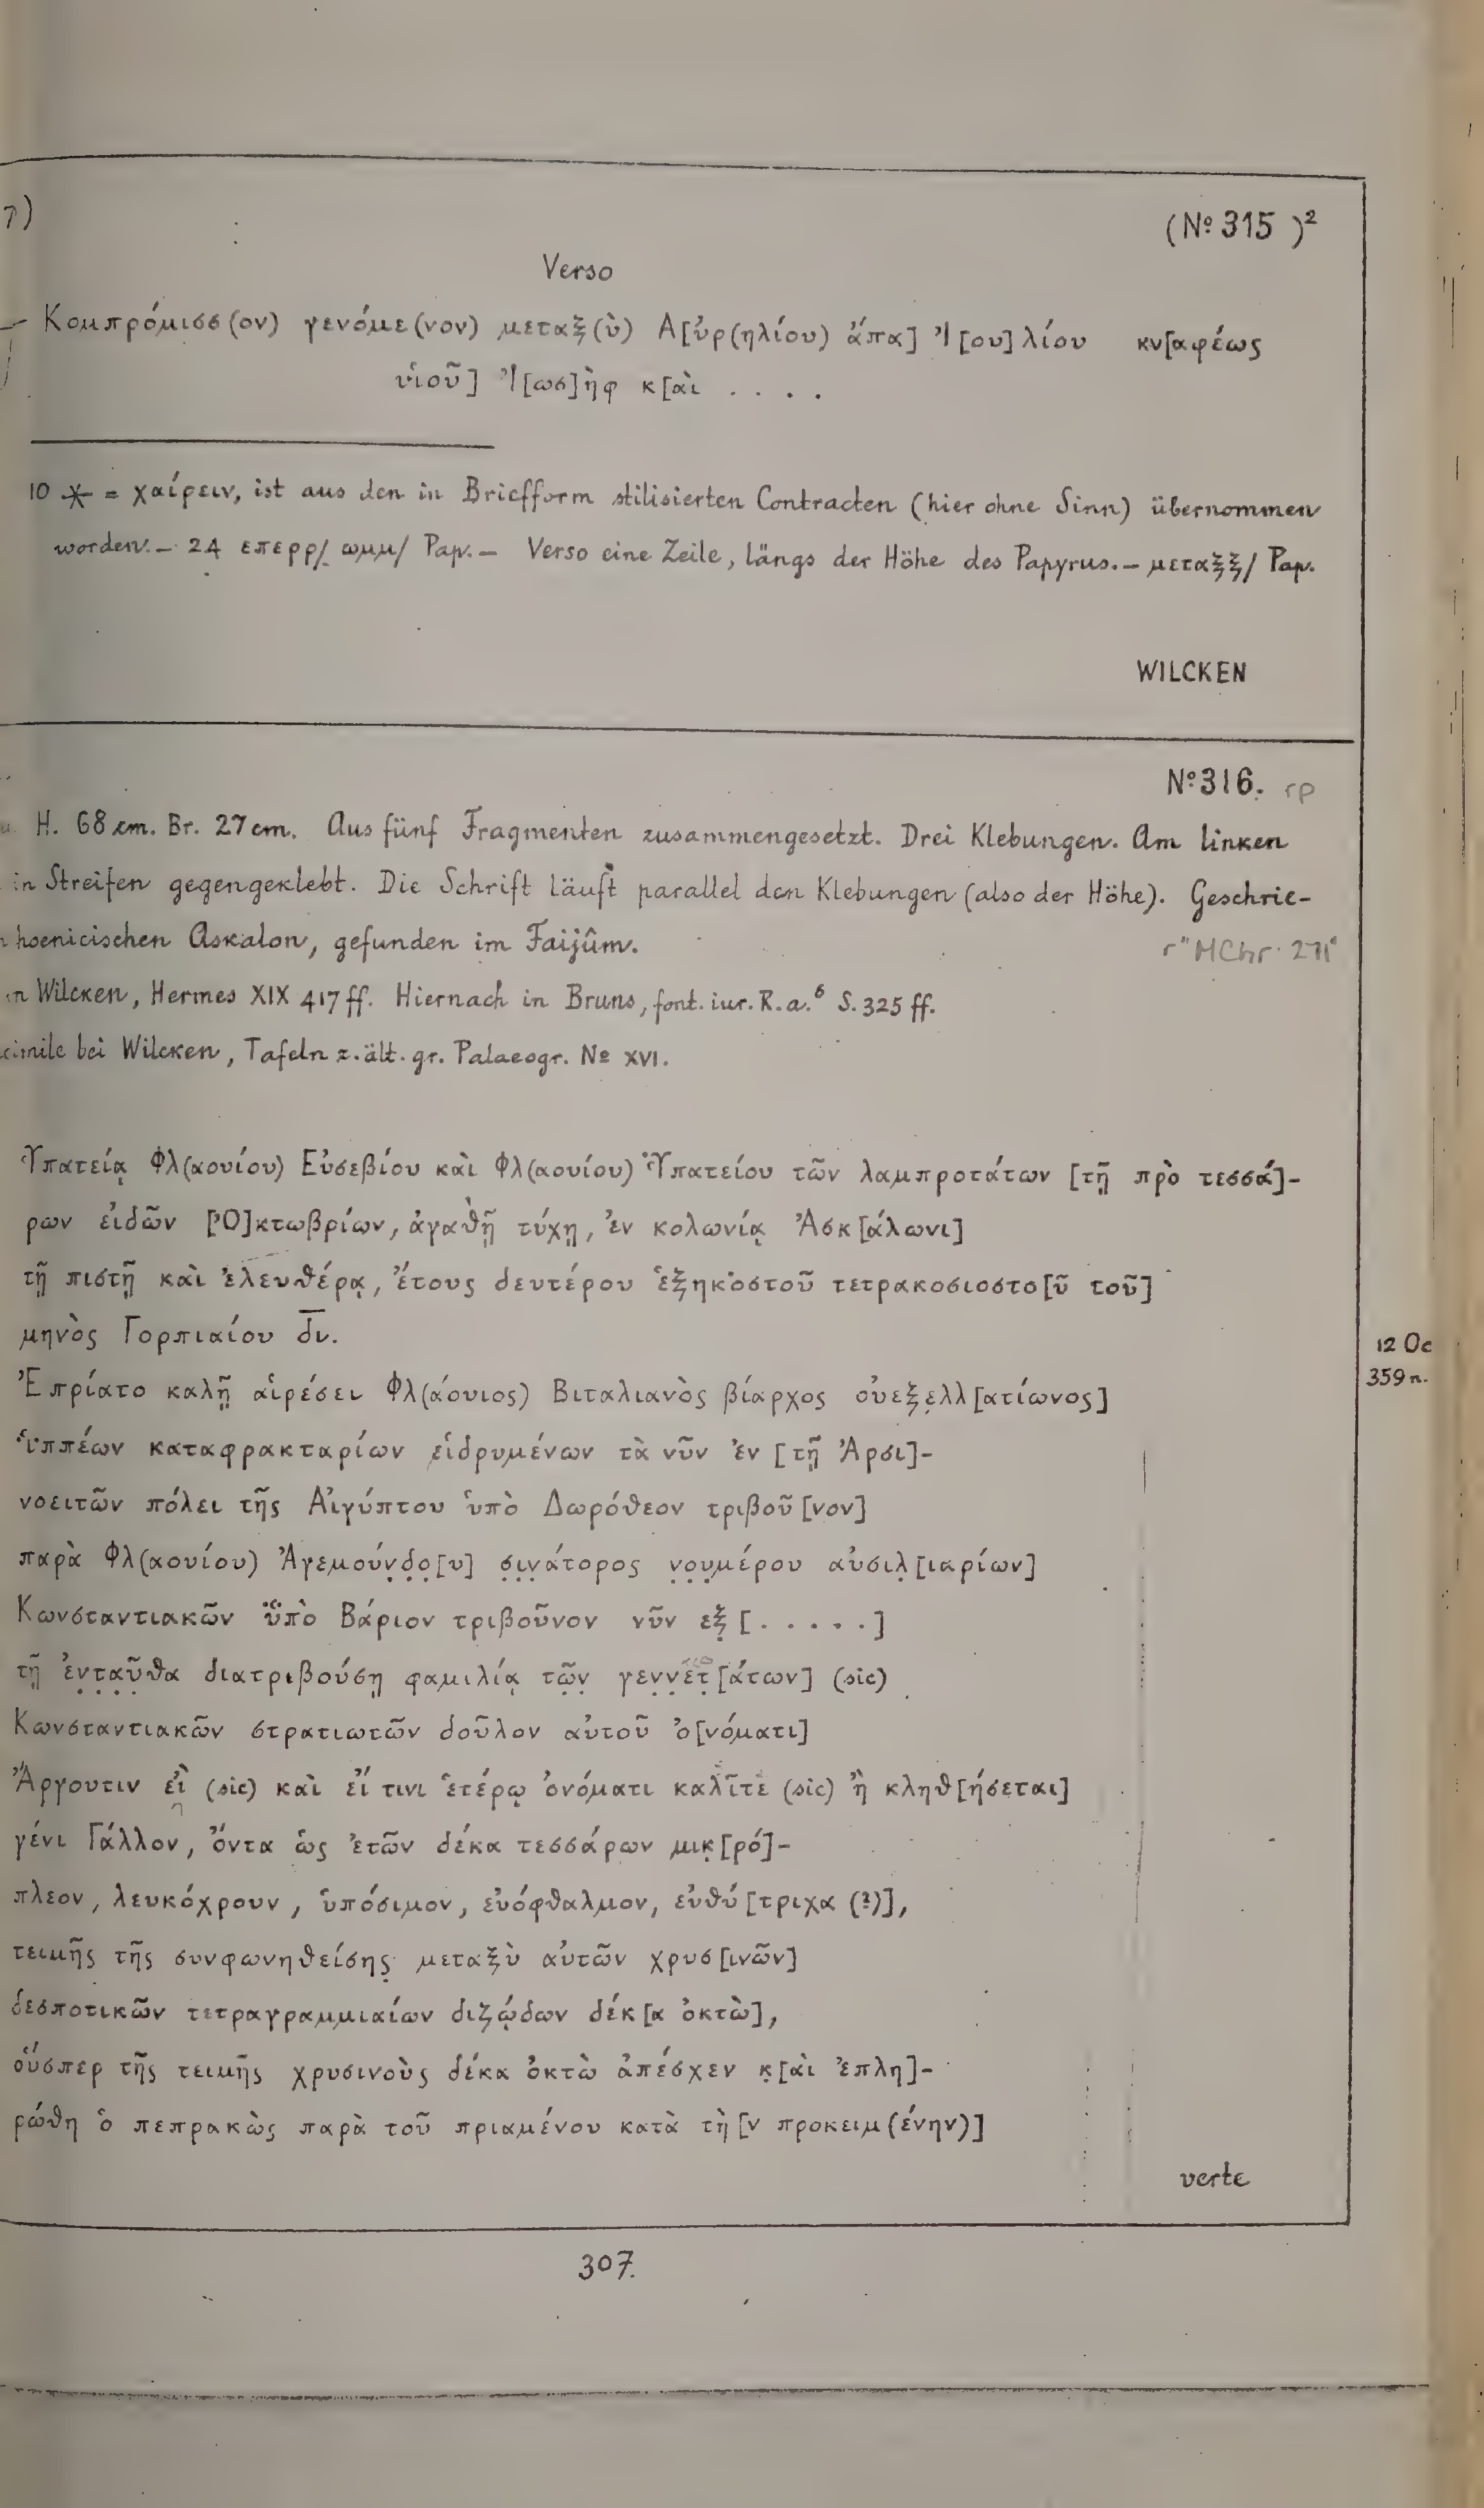 7)
(№ 315 )²
Verso
Κομπρόμισσ(ον) γενόμε(νον) μεταξ(ὺ) Α[ὐρ(ηλίου) ἄπα] Ἰ[ου]λίου κν[αφέως
υἱοῦ] Ἰ[ωσ]ὴφ κ[αὶ . . . .
10 ⳩ = χαίρειν, ist aus den in Briefform stilisierten Contracten (hier ohne Sinn) übernommen
worden. – 24 επερρ/ ωμμ/ Pap. – Verso eine Zeile, längs der Höhe des Papyrus. – μεταξξ/ Pap.
WILCKEN
№ 316. rp
H. 68 cm. Br. 27 cm. Aus fünf Fragmenten zusammengesetzt. Drei Klebungen. Am linken
in Streifen gegengeklebt. Die Schrift läuft parallel den Klebungen (also der Höhe). Geschrie-
hoenicischen Askalon, gefunden im Faijûm.
r" MChr. 271"
n Wilcken, Hermes XIX 417 ff. Hiernach in Bruns, font. iur. R. a.⁶ S. 325 ff.
cimile bei Wilcken, Tafeln z. ält. gr. Palaeogr. № XVI.
Ὑπατείᾳ Φλ(αουίου) Εὐσεβίου καὶ Φλ(αουίου) Ὑπατείου τῶν λαμπροτάτων [τῇ πρὸ τεσσά]-
ρων εἰδῶν [Ὀ]κτωβρίων, ἀγαθῇ τύχῃ, ἐν κολωνίᾳ Ἀσκ[άλωνι]
τῇ πιστῇ καὶ ἐλευθέρᾳ, ἔτους δευτέρου ἑξηκοστοῦ τετρακοσιοστο[ῦ τοῦ]
μηνὸς Γορπιαίου δ̅ν̅.
12 Oc
359 n.
Ἐπρίατο καλῇ αἱρέσει Φλ(άουιος) Βιταλιανὸς βίαρχος οὐεξελλ[ατίωνος]
ἱππέων καταφρακταρίων εἱδρυμένων τὰ νῦν ἐν [τῇ Ἀρσι]-
νοειτῶν πόλει τῆς Αἰγύπτου ὑπὸ Δωρόθεον τριβοῦ[νον]
παρὰ Φλ(αουίου) Ἀγεμούν̣δ̣ο̣[υ] σ̣ι̣ν̣άτορος ν̣ο̣υ̣μέρου αὐσιλ̣[ιαρίων]
Κωνσταντιακῶν ὑπὸ Βάριον τριβοῦνον νῦν εξ̣ [. . . . .]
τῇ ἐν̣τ̣α̣ῦ̣θα διατριβούσῃ φαμιλίᾳ τῶ̣ν̣ γεν̣ν̣ετ̣[άτων] (sic)
Κωνσταντιακῶν στρατιωτῶν δοῦλον αὐτοῦ ὀ[νόματι]
Ἄργουτιν εἲ (sic) καὶ εἴ τινι ἑτέρῳ ὀνόματι καλῖτε (sic) ἢ κληθ[ήσεται]
γένι Γάλλον, ὄντα ὡς ἐτῶν δέκα τεσσάρων μικ̣[ρό]-
πλεον, λευκόχρουν, ὑπόσιμον, εὐόφθαλμον, εὐθύ[τριχα (?)],
τειμῆς τῆς συνφωνηθείσης μεταξὺ αὐτῶν χρυσ[ινῶν]
δεσποτικῶν τετραγραμμιαίων διζῴδων δέκ[α ὀκτὼ],
οὕσπερ τῆς τειμῆς χρυσινοὺς δέκα ὀκτὼ ἀπέσχεν κ̣[αὶ ἐπλη]-
ρώθη ὁ πεπρακὼς παρὰ τοῦ πριαμένου κατὰ τὴ[ν προκειμ(ένην)]
verte
307.